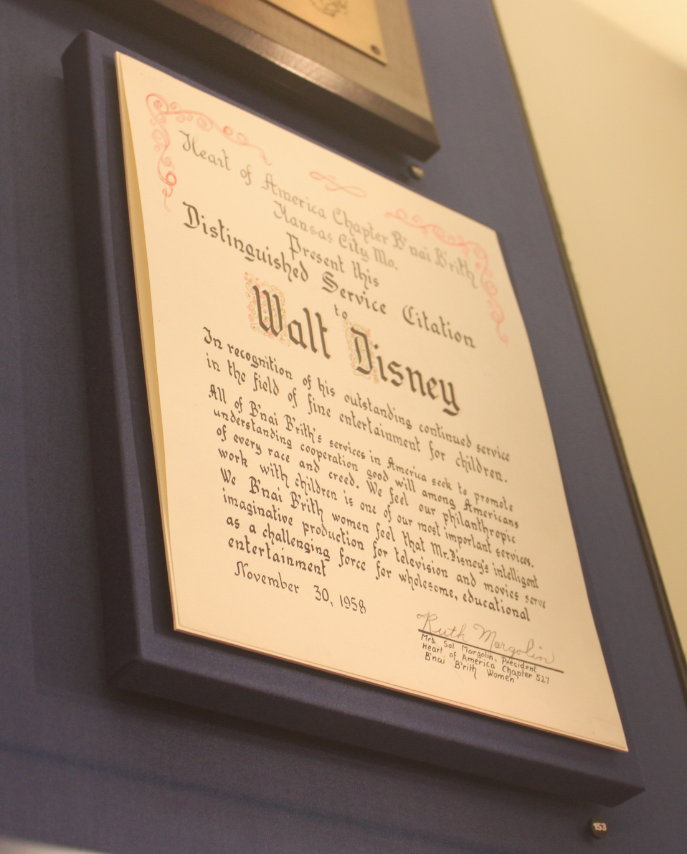 Heart of America Chapter B'nai B'rith
Kansas City Mo.
Present this
Distinguished Service Citation
to
Walt Disney
In recognition of his outstanding continued service
in the field of fine entertainment for children.
All of B'nai B'rith's services in America seek to promote
understanding cooperation good will among Americans
of every race and creed. We feel our philanthropic
work with children is one of our most important services.
We B'nai B'rith women feel that Mr. Disney's intelligent
imaginative production for television and movies serve
as a challenging force for wholesome, educational
entertainment
November 30, 1958
Ruth Margolin
Mrs. Sol Margolin, President
Heart of America Chapter 527
B'nai B'rith Women
153